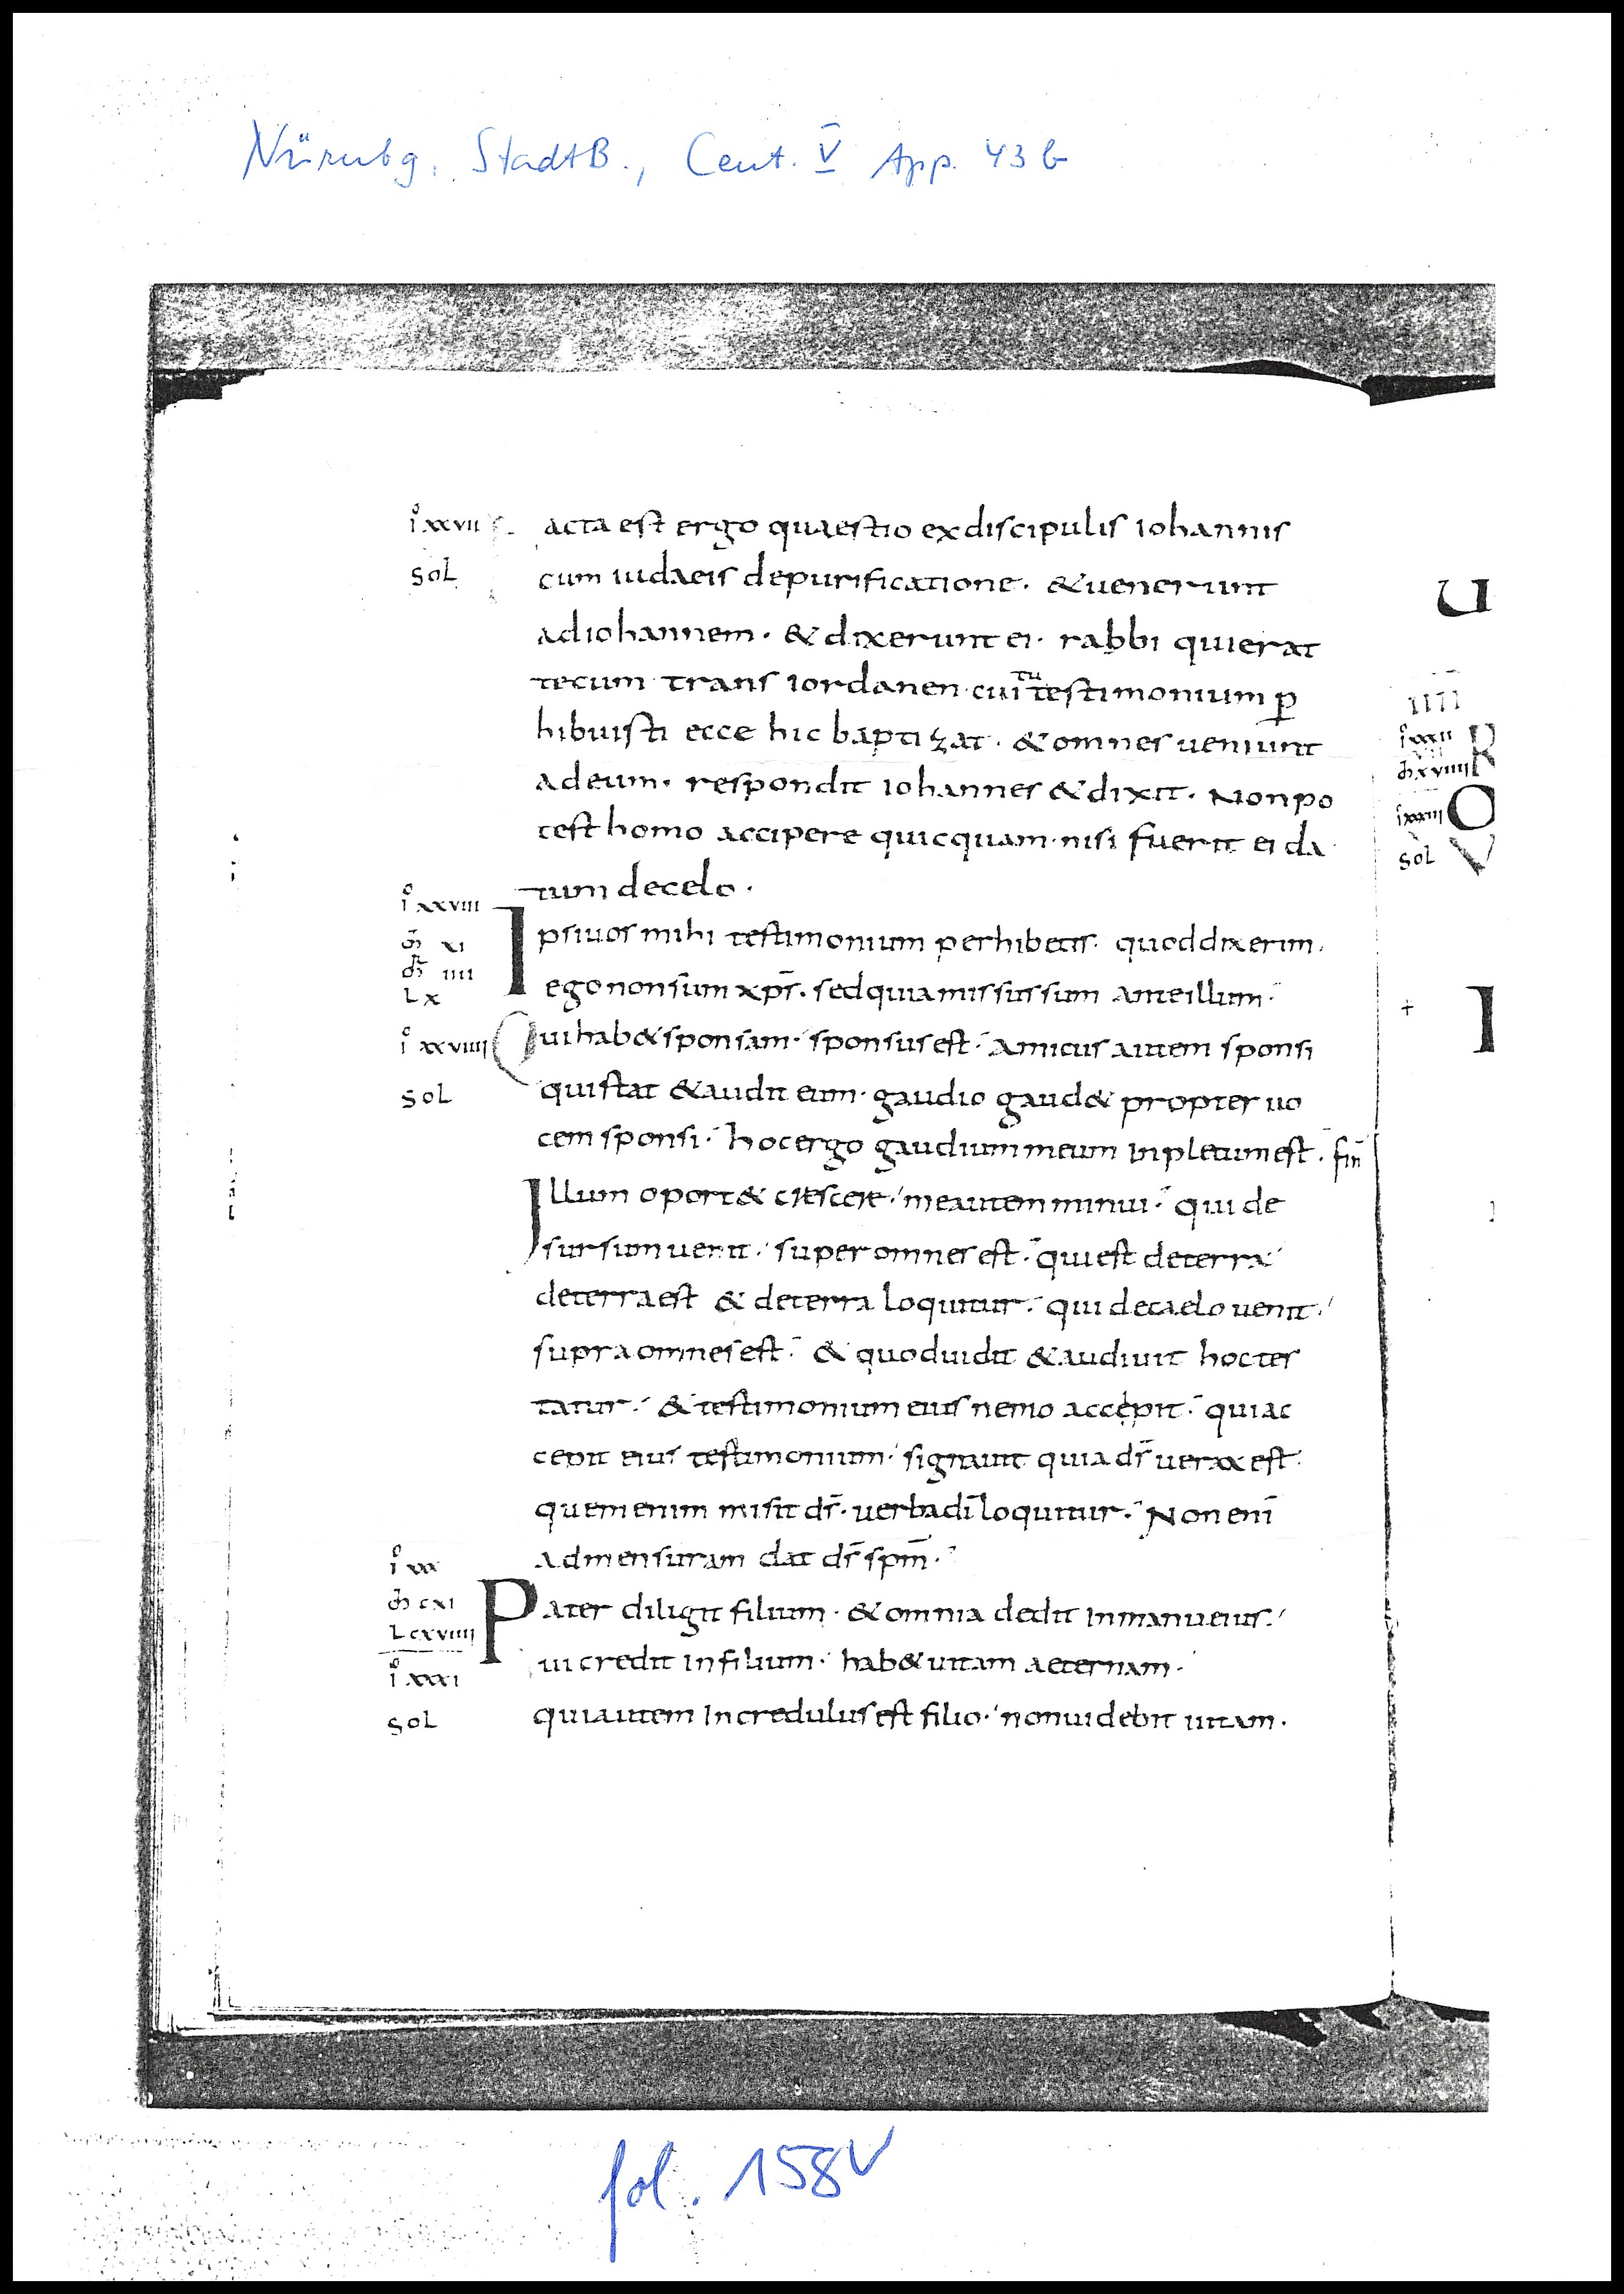 Nürnbg. StadtB., Cent. V App. 43 b
iº xxvii
acta est ergo quaestio ex discipulis iohannis
sol
cum iudaeis de purificatione. & uenerunt
ad iohannem. & dixerunt ei. rabbi qui erat
tecum trans iordanen cui tu testimonium ꝑ
hibuisti ecce hic baptizat. & omnes ueniunt
ad eum. respondit iohannes & dixit. Non po
test homo accipere quicquam. nisi fuerit ei da
tum de celo.
iº xxviii
m̄ xi
iiii
L x
Ipsi uos mihi testimonium perhibetis. quod dixerim.
ego non sum xp̄s. sed quia missus sum ante illum.
iº xxviiii
Qui hab& sponsam. sponsus est. Amicus autem sponsi
sol
qui stat & audit eum. gaudio gaud& propter uo
cem sponsi. hoc ergo gaudium meum inpletum est. fin̄
Illum oport& crescere. me autem minui. qui de
sursum uenit. super omnes est. qui est de terra
de terra est & de terra loquitur. qui de caelo uenit.
supra omnes est. & quod uidit & audiuit hoc tes
tatur. & testimonium eius nemo accepit. qui ac
cepit eius testimonium. signauit quia d̄s uerax est.
quem enim misit d̄s. uerba dī loquitur. Non enī
ad mensuram dat d̄s sp̄m.
iº xxx
m̄ cxi
L cxviiii
Pater diligit filium. & omnia dedit in manu eius.
iº xxxi
ui credit in filium. hab& uitam aeternam.
sol
qui autem incredulus est filio. non uidebit uitam.
U
iiii
iº xxxii
R
m̄ xviiii
iº xxxiii
O
sol
V
+
I
fol. 158v